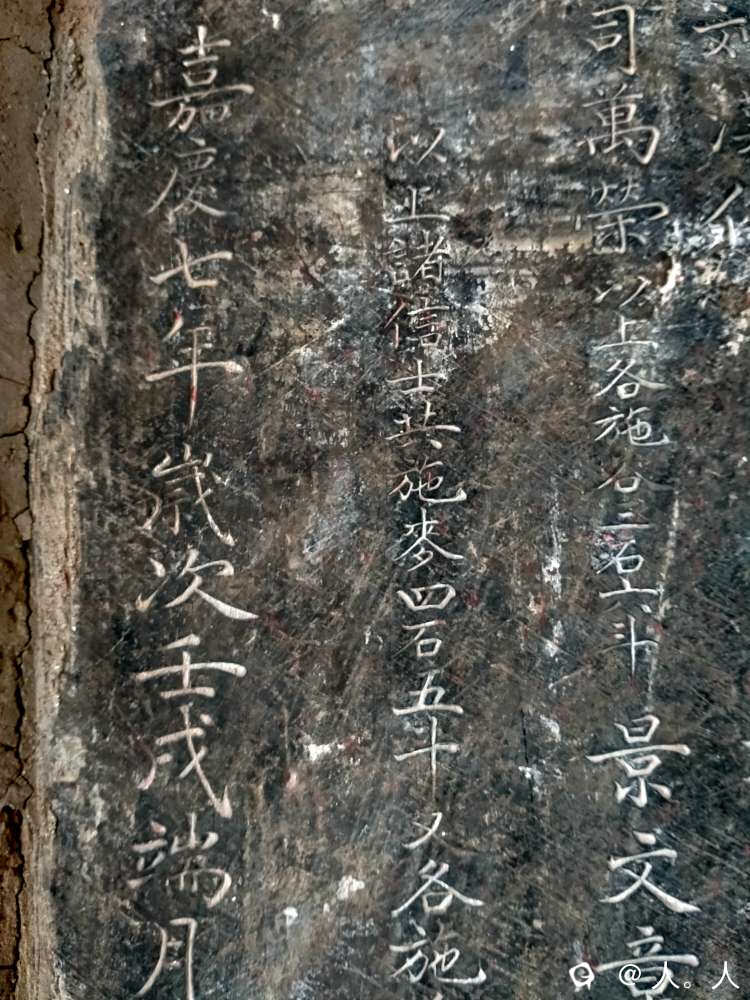 文
司萬荣以上各施谷三石六斗景文音
以上諸信士共施麥四石五十又各施
嘉慶七年歲次壬戌端月
@人。人